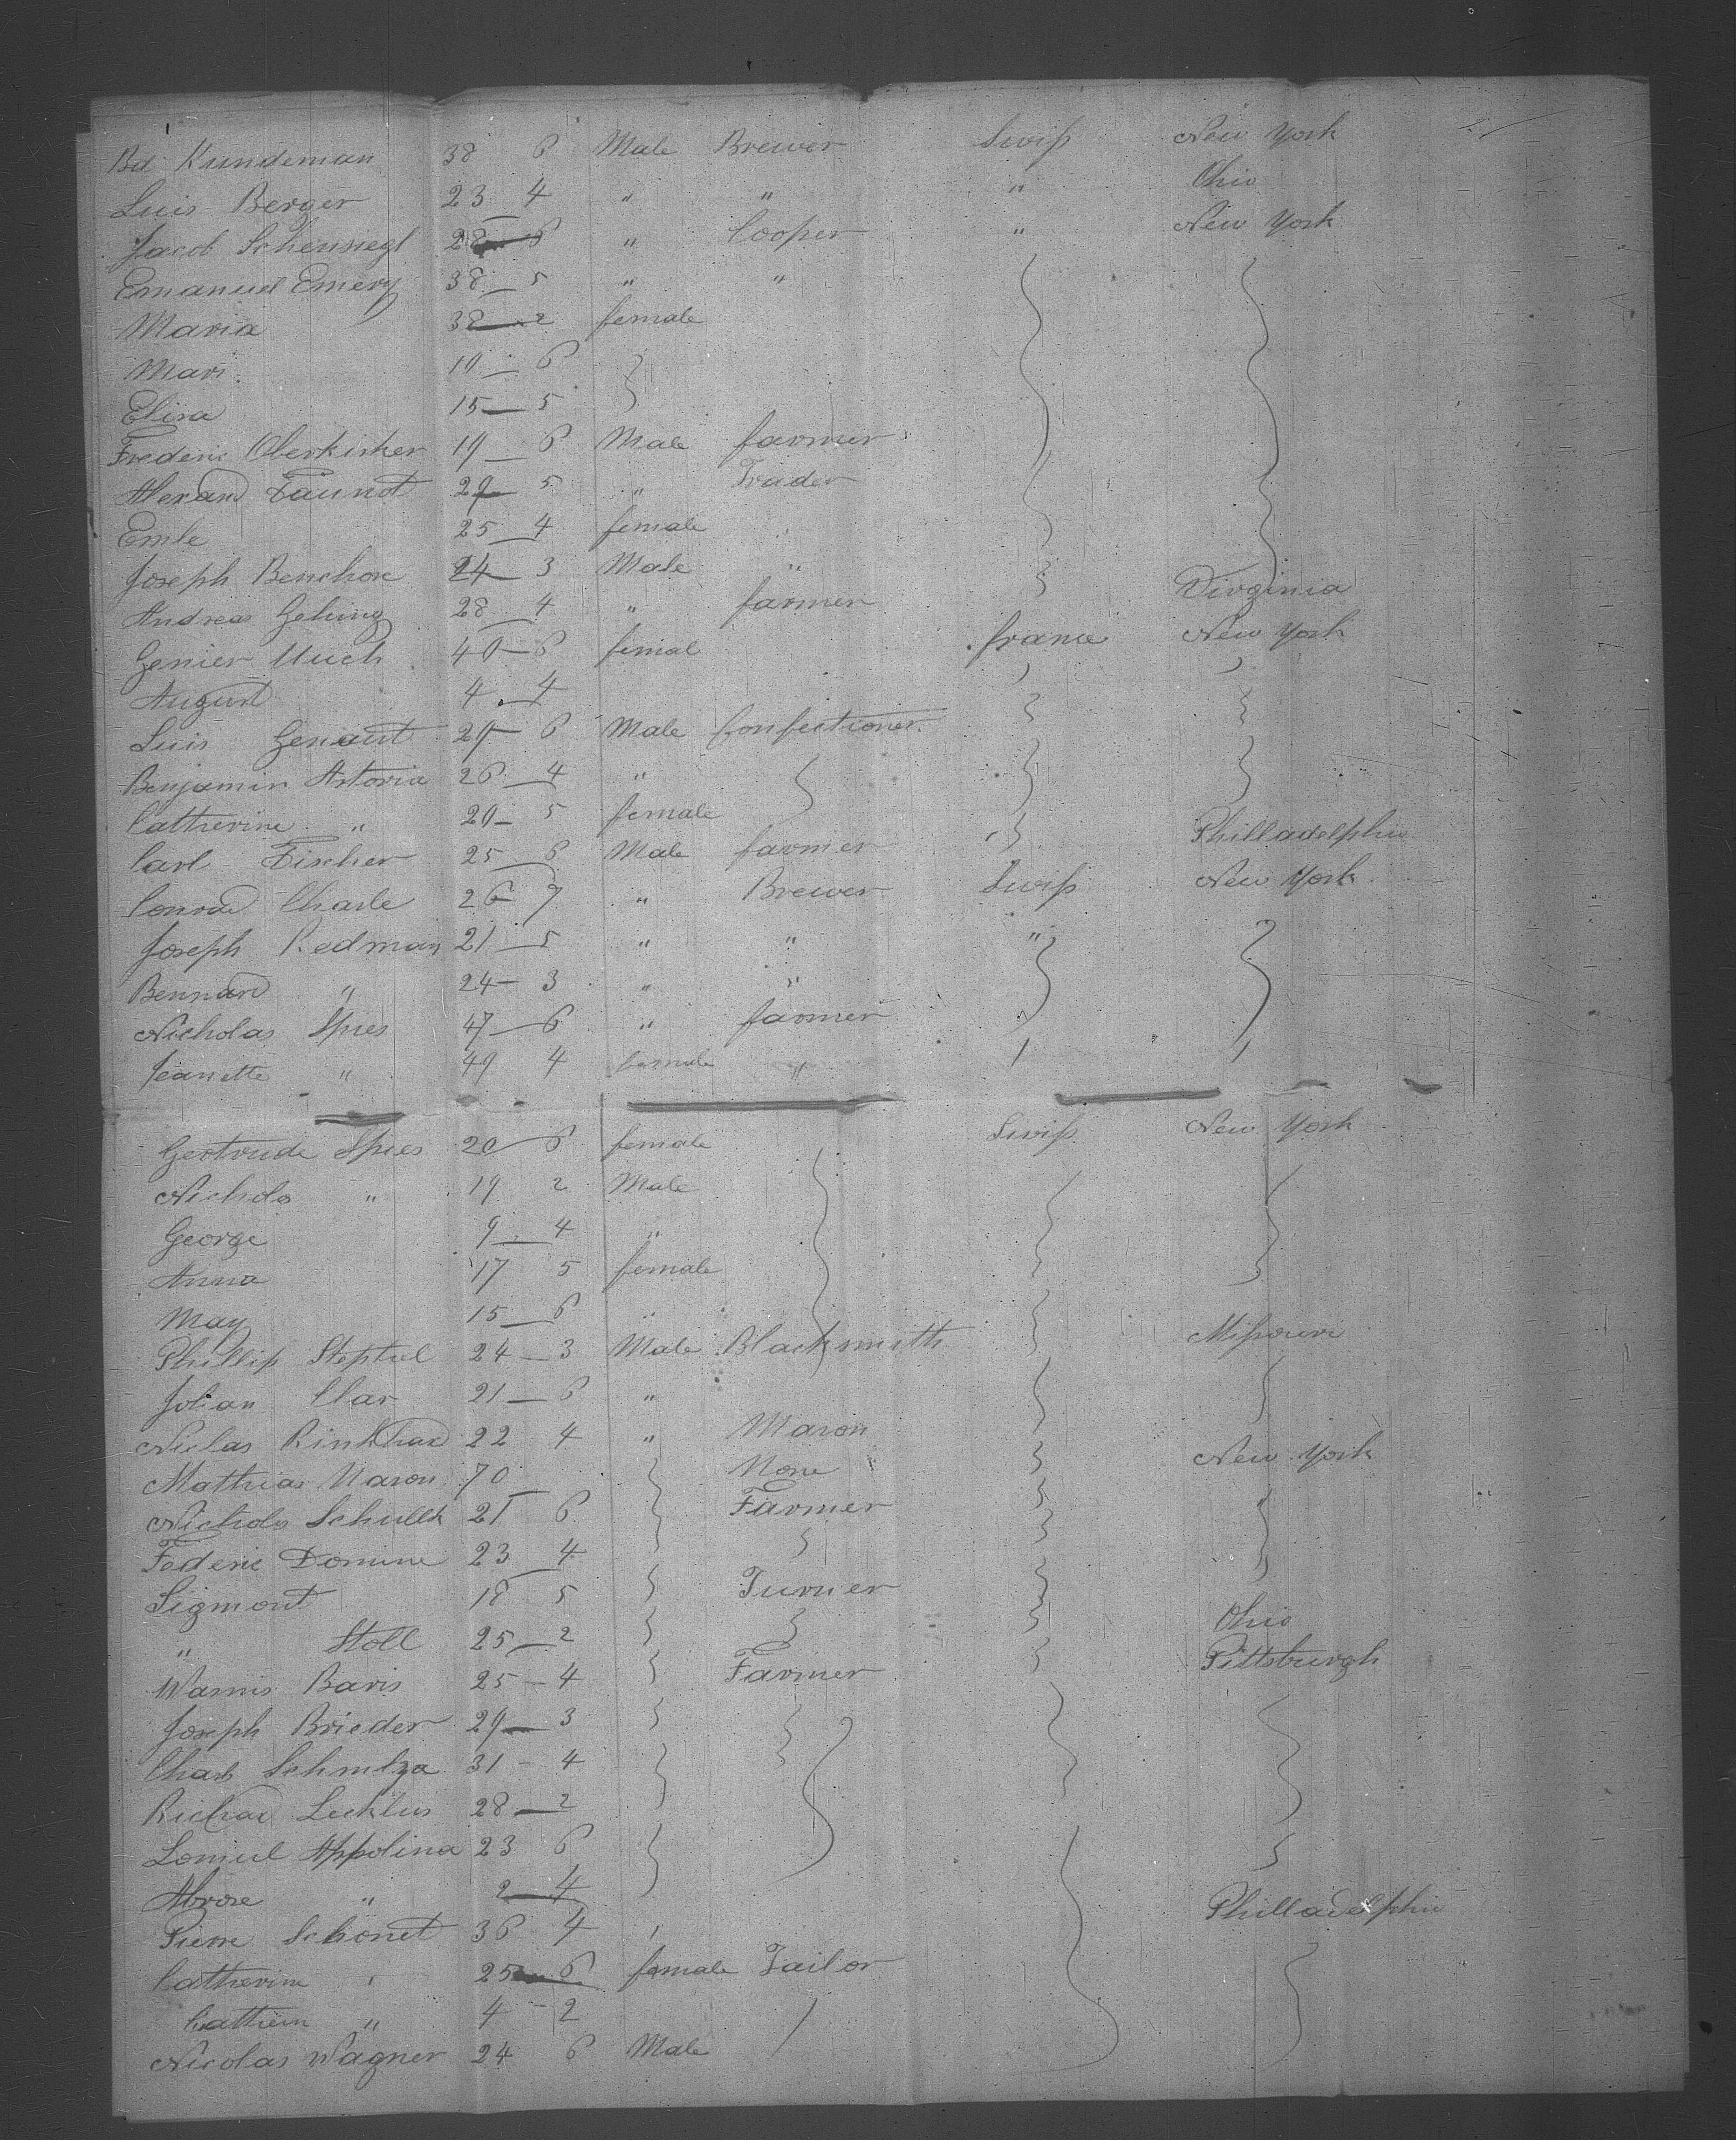 Bd Kundeman 38 6 Male Brewer Swiss New York
Luis Berger 23 4 " " " Ohio
Jacob Schensiegl 28 6 " Cooper " New York
Emanuel Emery 38 5 " "
Maria 38 2 female
Mari 10 6
Elisa 15 5
Frederic Oberkirker 19 6 Male farmer
Alexand Faunot 29 5 " Trader
Emle 25 4 female
Joseph Benchore 24 3 Male "
Andreas Gehing 28 4 " farmer Virginia
Genier Much 40 6 femal france New York
August 4 4
Luis Genaut 29 6 Male Confectioner
Benjamin Astoria 26 4 "
Catherine " 20 5 female
Carl Fischer 25 6 Male farmer Philladelphia
Conrad Charle 26 7 " Brewer Swiss New York
Joseph Redman 21 5 " " "
Bennard " 24 3 " "
Nicholas Spies 47 6 " farmer
Jeanette " 49 4 female "
Gertrude Spies 20 6 female Swiss New York
Nichols " 19 2 Male
George 9 4 "
Anna 17 5 female
May 15 6 "
Phillip Steptul 24 3 Male Blacksmith Missouri
Johan Clar 21 6 "
Niclas Rinkhard 22 4 " Mason
Mathias Nason 70 None New York
Nichols Schullk 21 6 Farmer "
Federic Domine 23 4
Sigmont 18 5 Turner
" Stoll 25 2 Ohio
Wannis Baris 25 4 Farmer Pittsburgh
Joseph Brieder 29 3
Charls Schmlza 31 4
Richard Lecklus 28 2
Lomiul Appolina 23 6
Abrose " 2 4
Pierre Schonet 36 4 Philladelphia
Catherine " 25 6 female Tailor
Cathrin " 4 2
Nicolas Wagner 24 6 Male